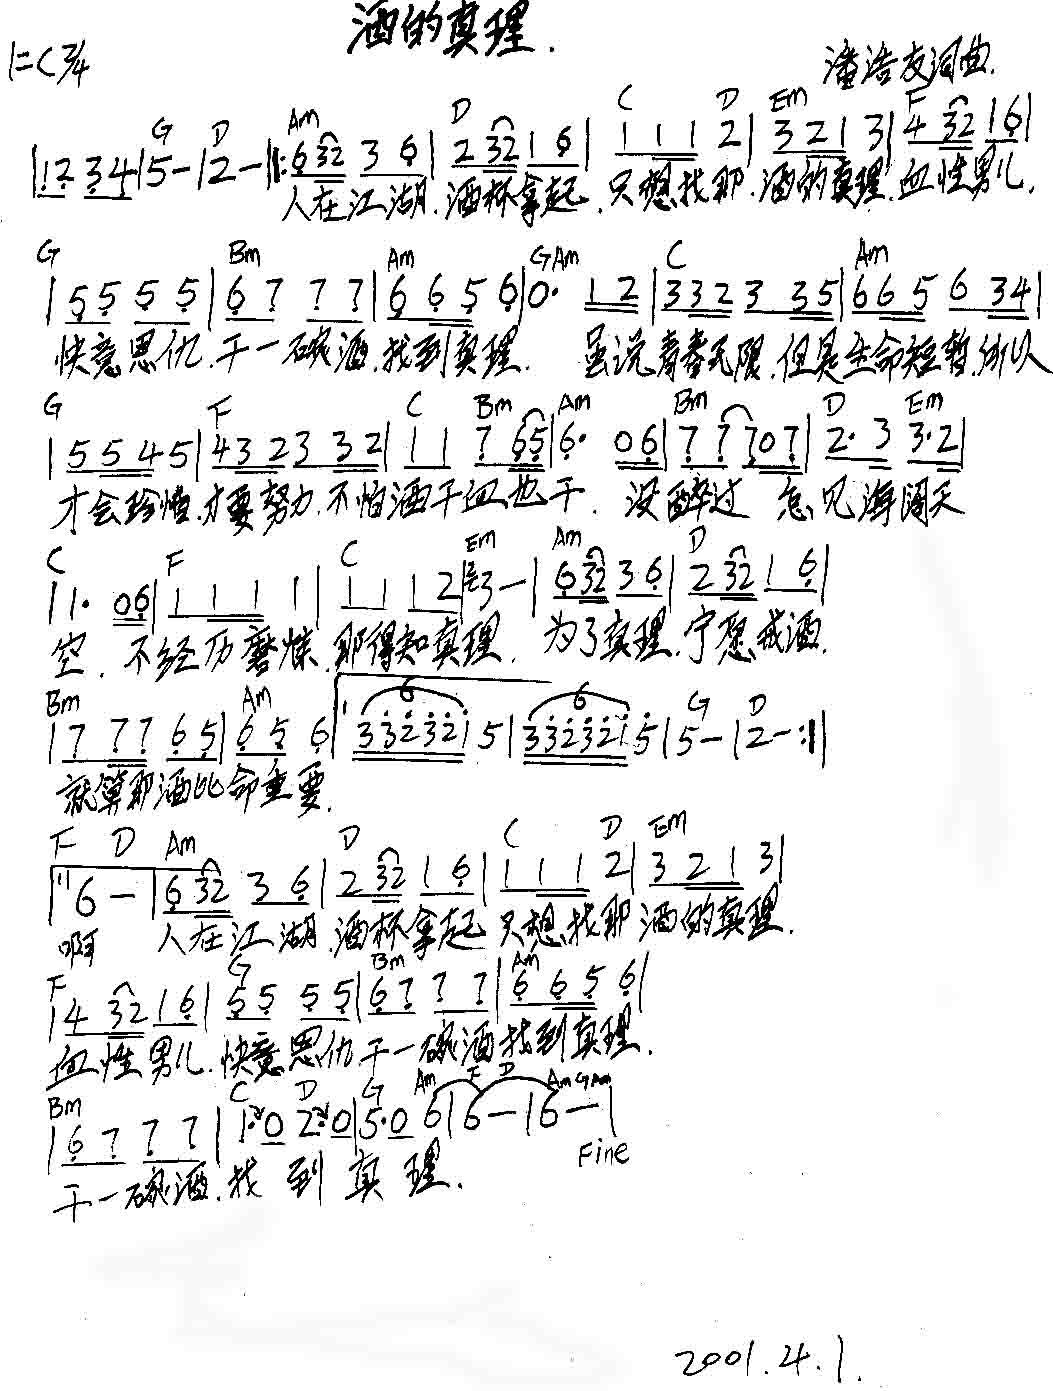 酒的真理.
1=C 2/4
潘浩友词曲.
G D Am D C D Em F
|12 34|5-|2-|:6 32 3 6|2 32 1 6|1 1 1 2|3 2 1 3|4 32 1 6|
人在江湖.酒杯拿起.只想找那.酒的真理.血性男儿.
G Bm Am G Am C Am
|5 5 5 5|6 7 7 7|6 6 5 6|0· 12|3 32 3 35|6 6 5 6 34|
快意恩仇.干一碗酒.找到真理. 虽说青春无限.但是生命短暂.所以
G F C Bm Am Bm D Em
|5 5 4 5|4 3 2 3 3 2|1 1 7 65|6· 06|7 7 7 0 7|2· 3 3·2|
才会珍惜.才要努力.不怕酒干血也干. 没醉过 怎见海阔天
C F C Em Am D
|1· 06|1 1 1 1|1 1 1 2|3-|6 32 3 6|2 32 1 6|
空. 不经历磨炼.那得知真理. 为了真理.宁愿戒酒.
Bm Am 6 6 G D
|7 7 7 6 5|6 5 6|1 332321 5|332321 5|5-|2-:||
就算那酒比命重要.
F D Am D C D Em
|6 -|6 32 3 6|2 32 1 6|1 1 1 2|3 2 1 3|
啊 人在江湖.酒杯拿起 只想找那酒的真理.
F G Bm Am
|4 32 1 6|5 5 5 5|6 7 7 7|6 6 5 6|
血性男儿.快意恩仇干一碗酒找到真理.
Bm C D G Am F D Am G Am
|6 7 7 7|1·0 2·0|5·0 6|6-|6-|
干一碗酒.找 到 真 理.
Fine
2001.4.1.